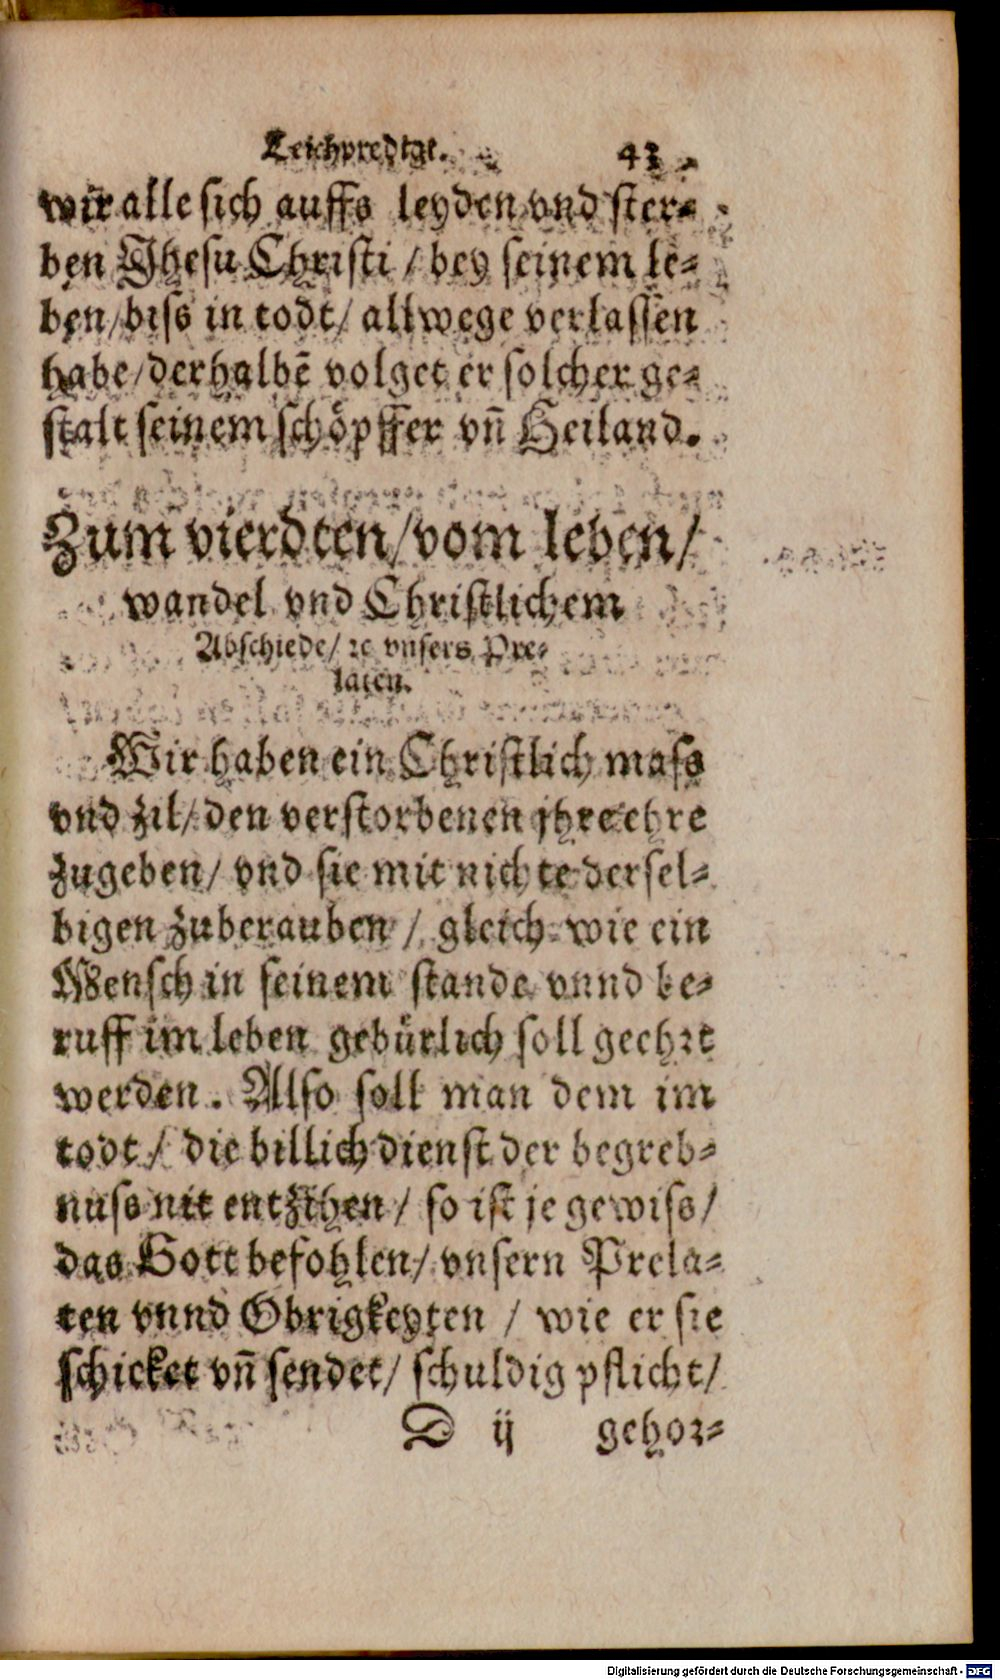 Leichpredigt. 43
wir alle sich auffs leyden vnd ster⸗
ben Jhesu Christi / bey seinem le⸗
ben / biss in todt / allwege verlassen
habe / derhalbē volget er solcher ge⸗
stalt seinem schöpffer vn̄ Heiland.
Zum vierdten / vom leben /
wandel vnd Christlichem
Abschiede / ꝛc vnsers Pre⸗
laten.
Wir haben ein Christlich mass
vnd zil / den verstorbenen jhre ehre
zugeben / vnd sie mit nichte dersel⸗
bigen zuberauben / gleich wie ein
Mensch in seinem stande vnnd be⸗
ruff im leben gebürlich soll geehrt
werden. Also soll man dem im
todt / die billich dienst der begreb⸗
nuss nit entzihen / so ist je gewiss /
das Gott befohlen / vnsern Prela⸗
ten vnnd Obrigkeyten / wie er sie
schicket vn̄ sendet / schuldig pflicht /
D ij gehor⸗
Digitalisierung gefördert durch die Deutsche Forschungsgemeinschaft - DFG